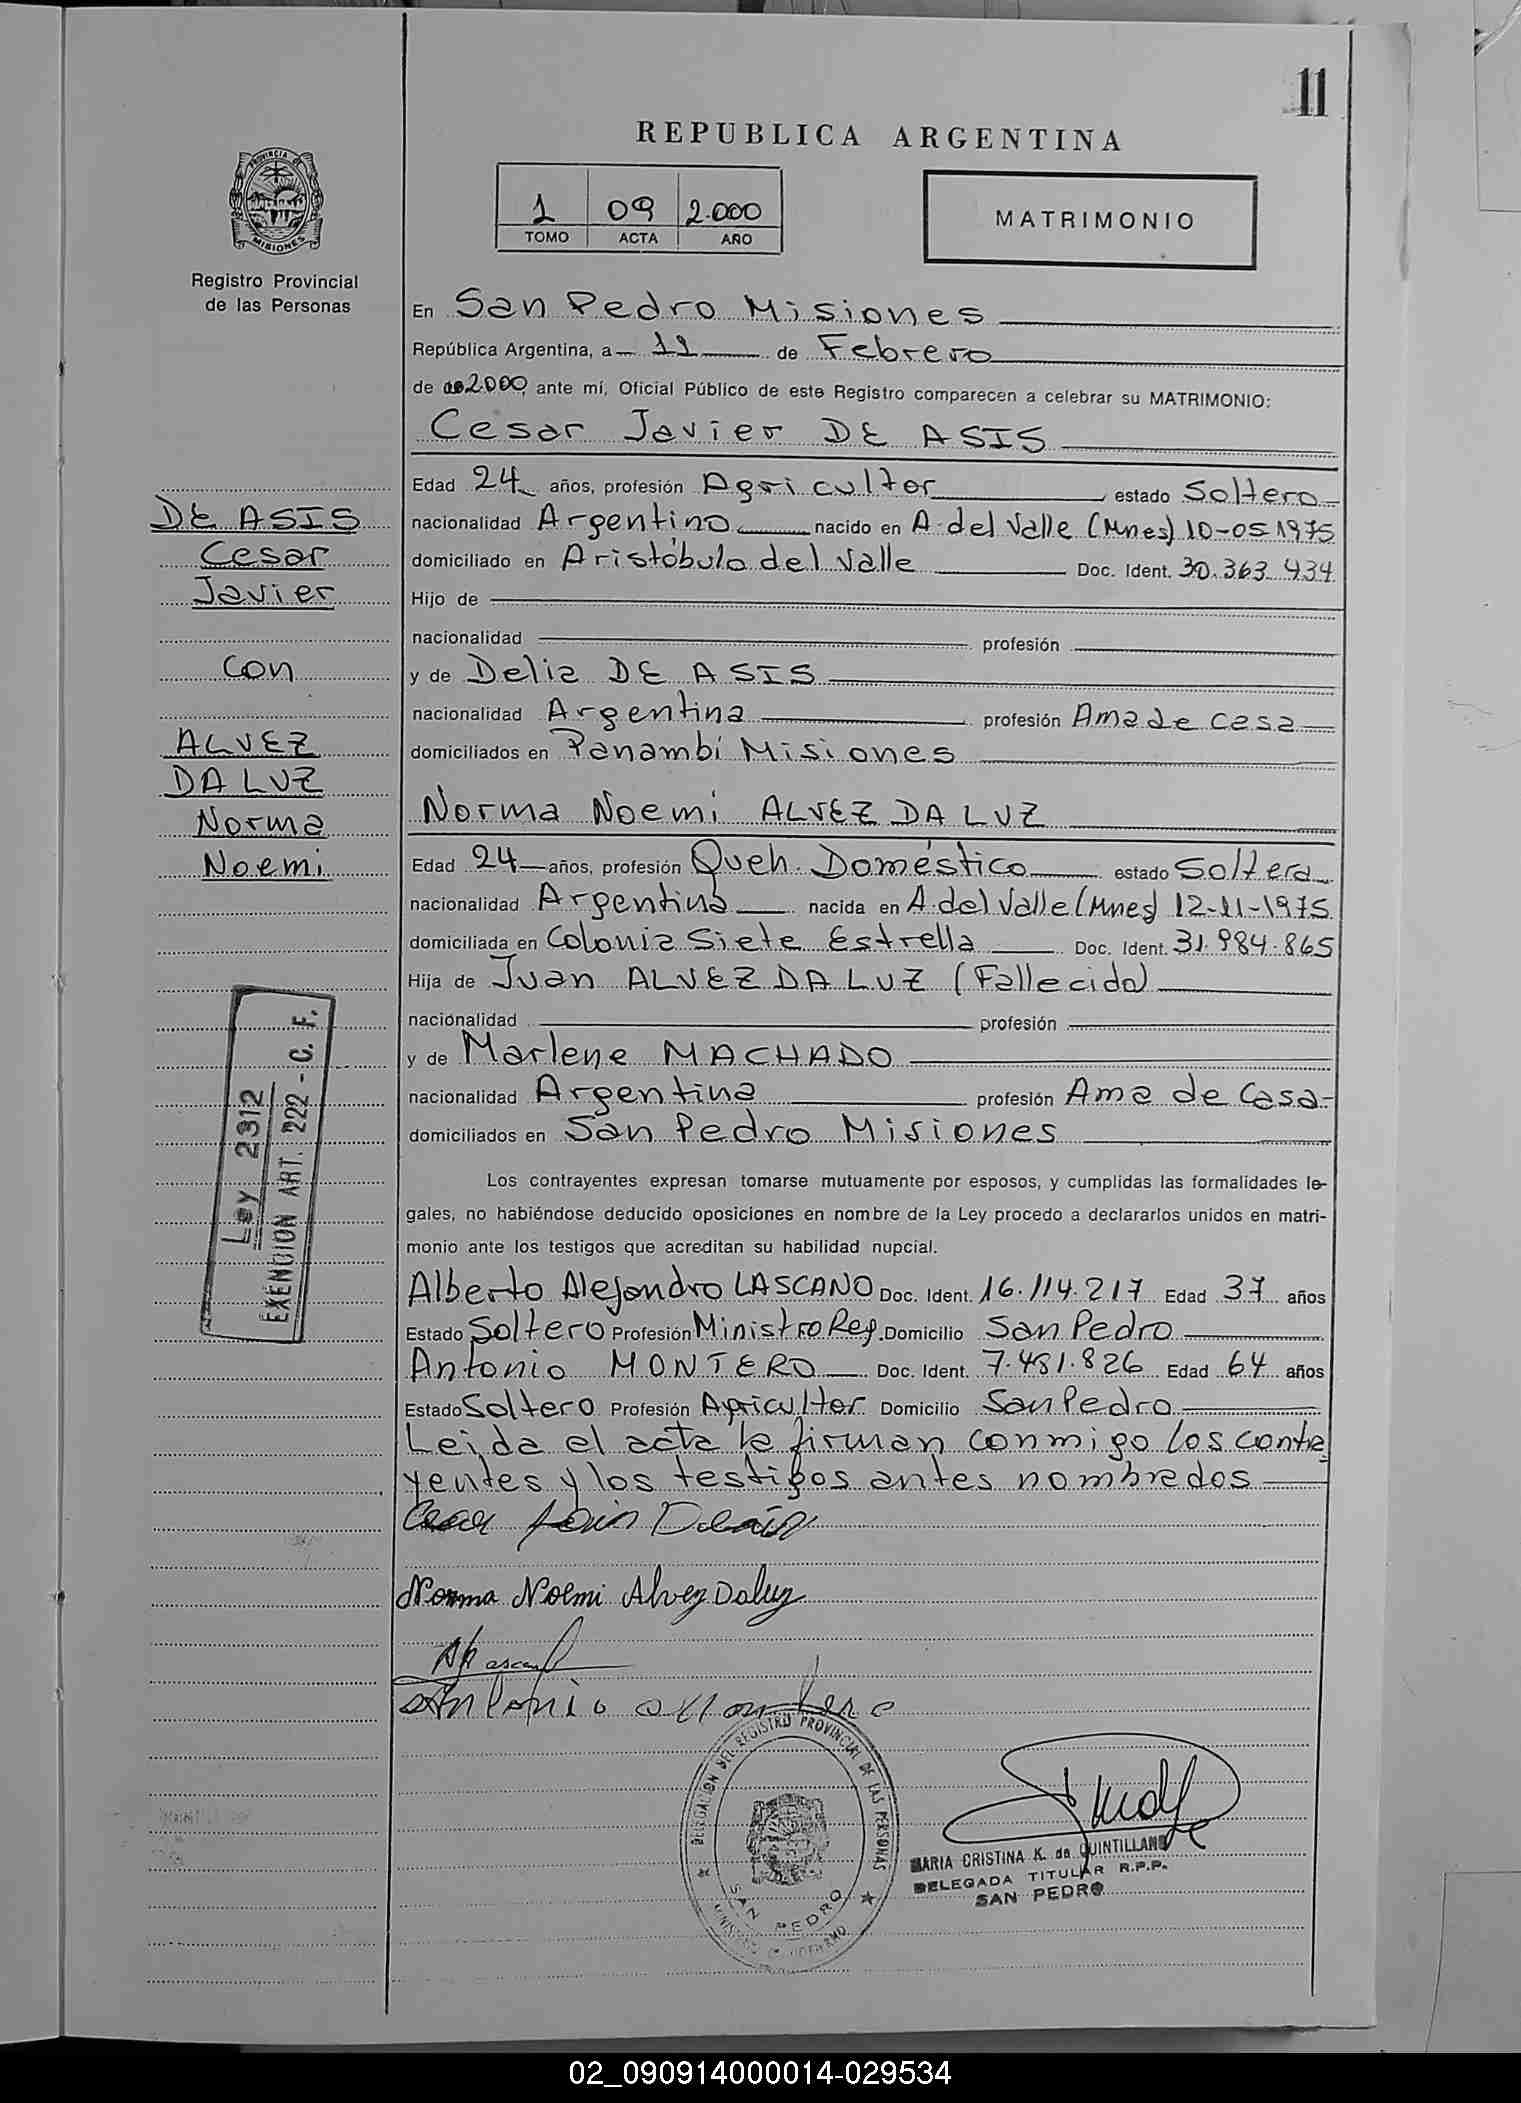 11
REPUBLICA ARGENTINA
1 09 2.000
TOMO ACTA AÑO
MATRIMONIO
PROVINCIA DE
MISIONES
Registro Provincial
de las Personas
En San Pedro Misiones
República Argentina, a 11 de Febrero
de 2.000, ante mí, Oficial Público de este Registro comparecen a celebrar su MATRIMONIO:
Cesar Javier DE ASIS
Edad 24 años, profesión Agricultor estado Soltero
nacionalidad Argentino nacido en A. del Valle (Mnes) 10-05-1975
domiciliado en Aristóbulo del Valle Doc. Ident. 30.363.434
Hijo de
nacionalidad profesión
y de Delia DE ASIS
nacionalidad Argentina profesión Ama de casa
domiciliados en Panambí Misiones
Norma Noemi ALVEZ DA LUZ
Edad 24 años, profesión Queh. Doméstico estado Soltera
nacionalidad Argentina nacida en A. del Valle (Mnes) 12-11-1975
domiciliada en Colonia Siete Estrella Doc. Ident. 31.984.865
Hija de Juan ALVEZ DA LUZ (Fallecido)
nacionalidad profesión
y de Marlene MACHADO
nacionalidad Argentina profesión Ama de Casa-
domiciliados en San Pedro Misiones
Los contrayentes expresan tomarse mutuamente por esposos, y cumplidas las formalidades le-
gales, no habiéndose deducido oposiciones en nombre de la Ley procedo a declararlos unidos en matri-
monio ante los testigos que acreditan su habilidad nupcial.
Alberto Alejandro LASCANO Doc. Ident. 16.114.217 Edad 37 años
Estado Soltero Profesión Ministro Rel. Domicilio San Pedro
Antonio MONTERO Doc. Ident. 7.481.826 Edad 64 años
Estado Soltero Profesión Agricultor Domicilio San Pedro
Leida el acta la firman conmigo los contra
yentes y los testigos antes nombrados
DE ASIS
Cesar
Javier
con
ALVEZ
DA LUZ
Norma
Noemi
Ley 2312
EXENCION ART. 222 - C. F.
Norma Noemi Alvez Daluz
Antonio Montero
DELEGACION DEL REGISTRO PROVINCIAL DE LAS PERSONAS
SAN PEDRO
MINISTERIO DE GOBIERNO
MARIA CRISTINA K. de QUINTILLAN
DELEGADA TITULAR R.P.P.
SAN PEDRO
02_090914000014-029534